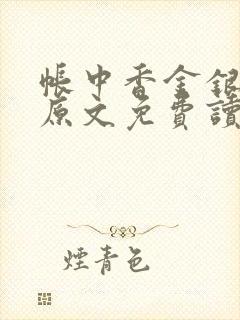 帳中香金銀
原文免費讀
煙青色